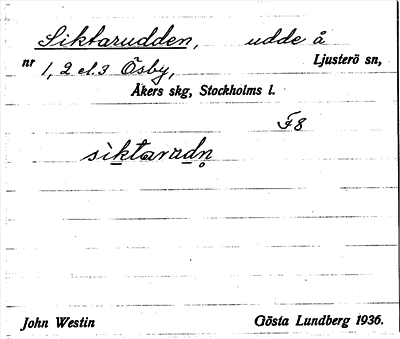 Siktarudden, udde å
nr 1, 2 el. 3 Ösby, Ljusterö sn,
Åkers skg, Stockholms l.
F8
sìktarudn̥
John Westin Gösta Lundberg 1936.